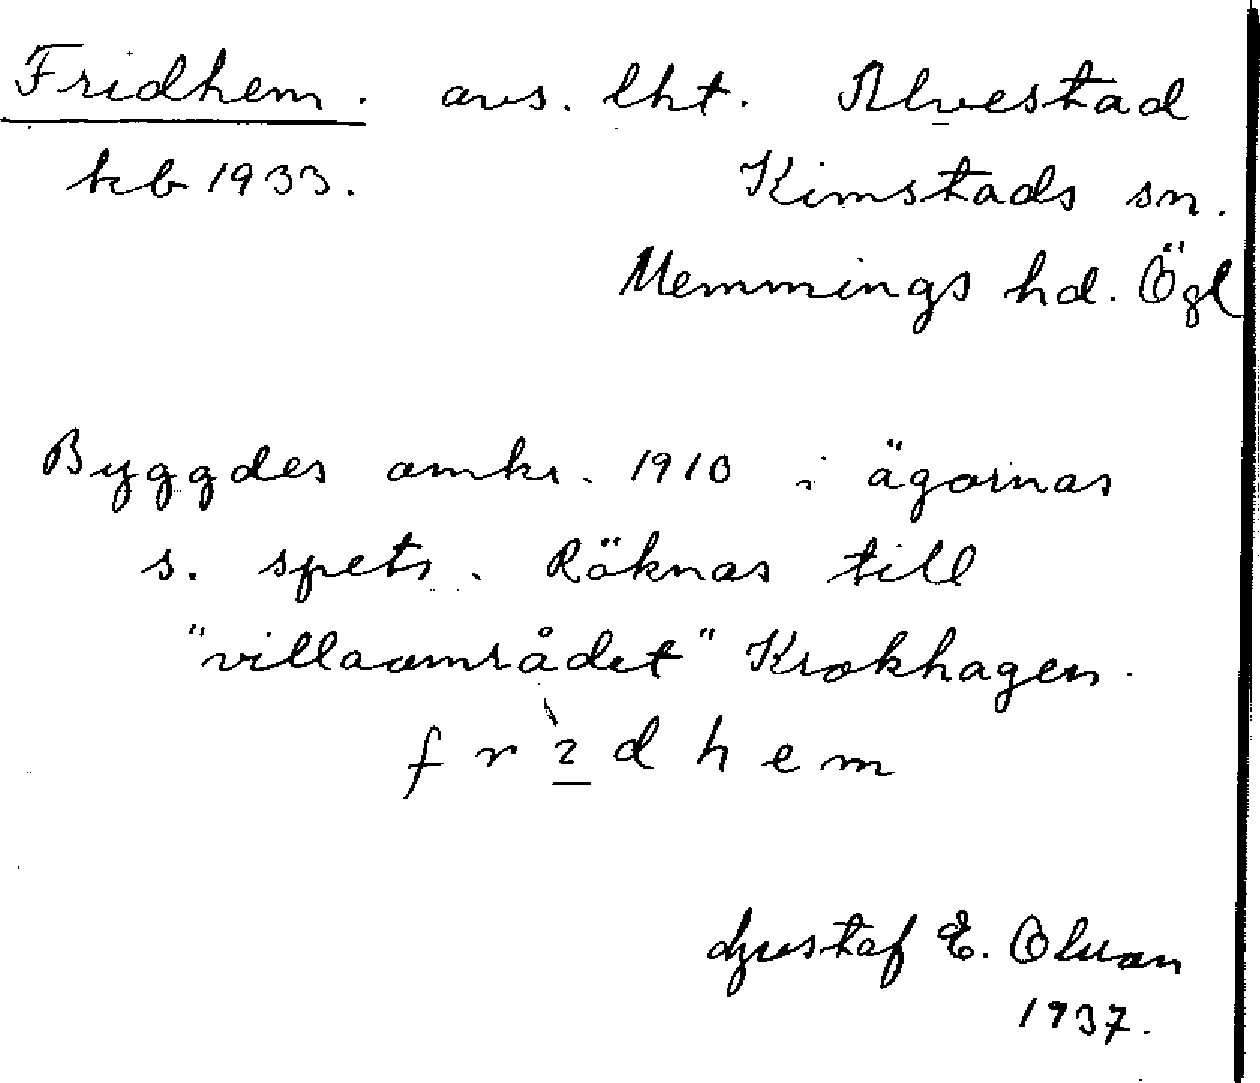 Fridhem. avs. lht. Alvestad
kb 1933. Kimstads sn.
Memmings hd. Ögl
Byggdes omkr. 1910 i ägornas
s. spets. Räknas till
"villaområdet" Krokhagen.
f r 2 d h e m
Gustaf E. Olsson
1937.